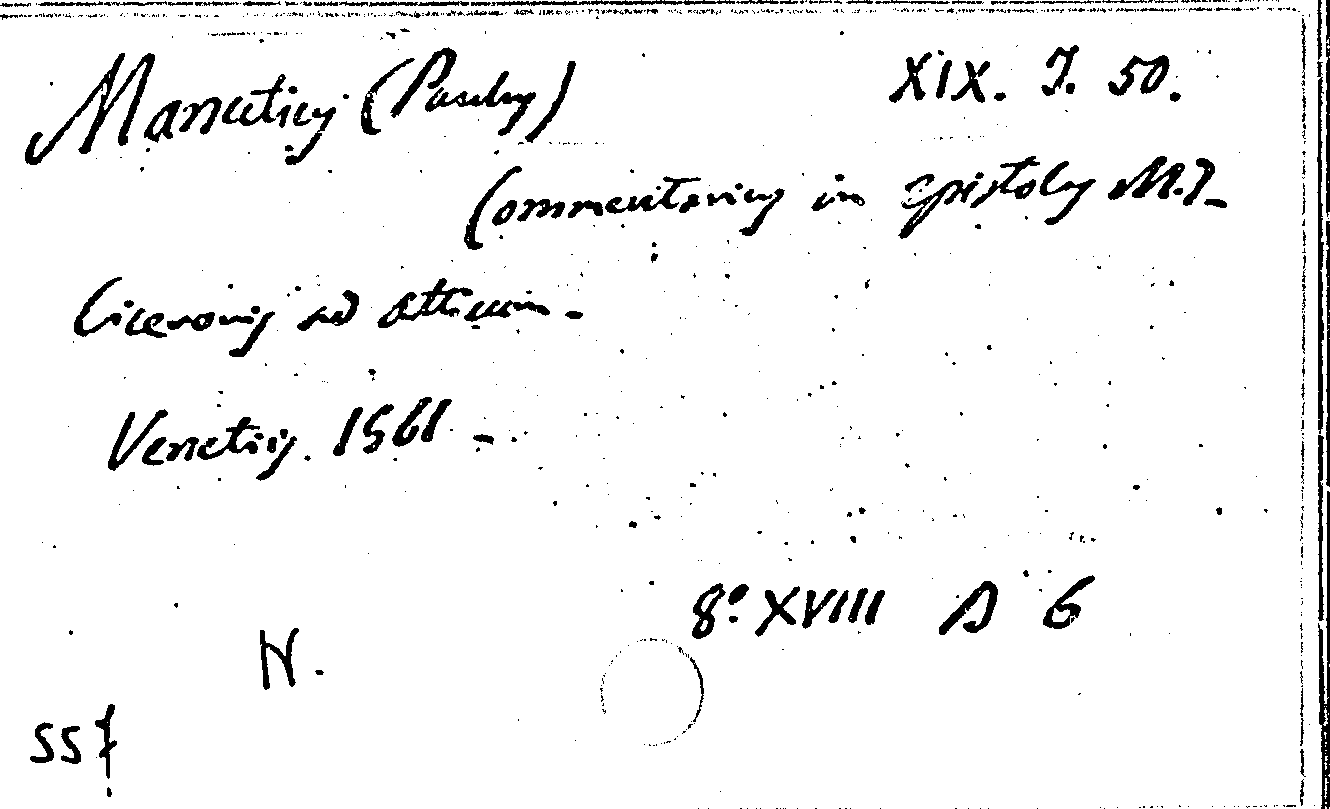 Manutius (Paulus) XIX. J. 50.
Commentarius in epistolas M. T.
Ciceronis ad atticum.
Venetiis. 1561
8º XVIII A 6
N.